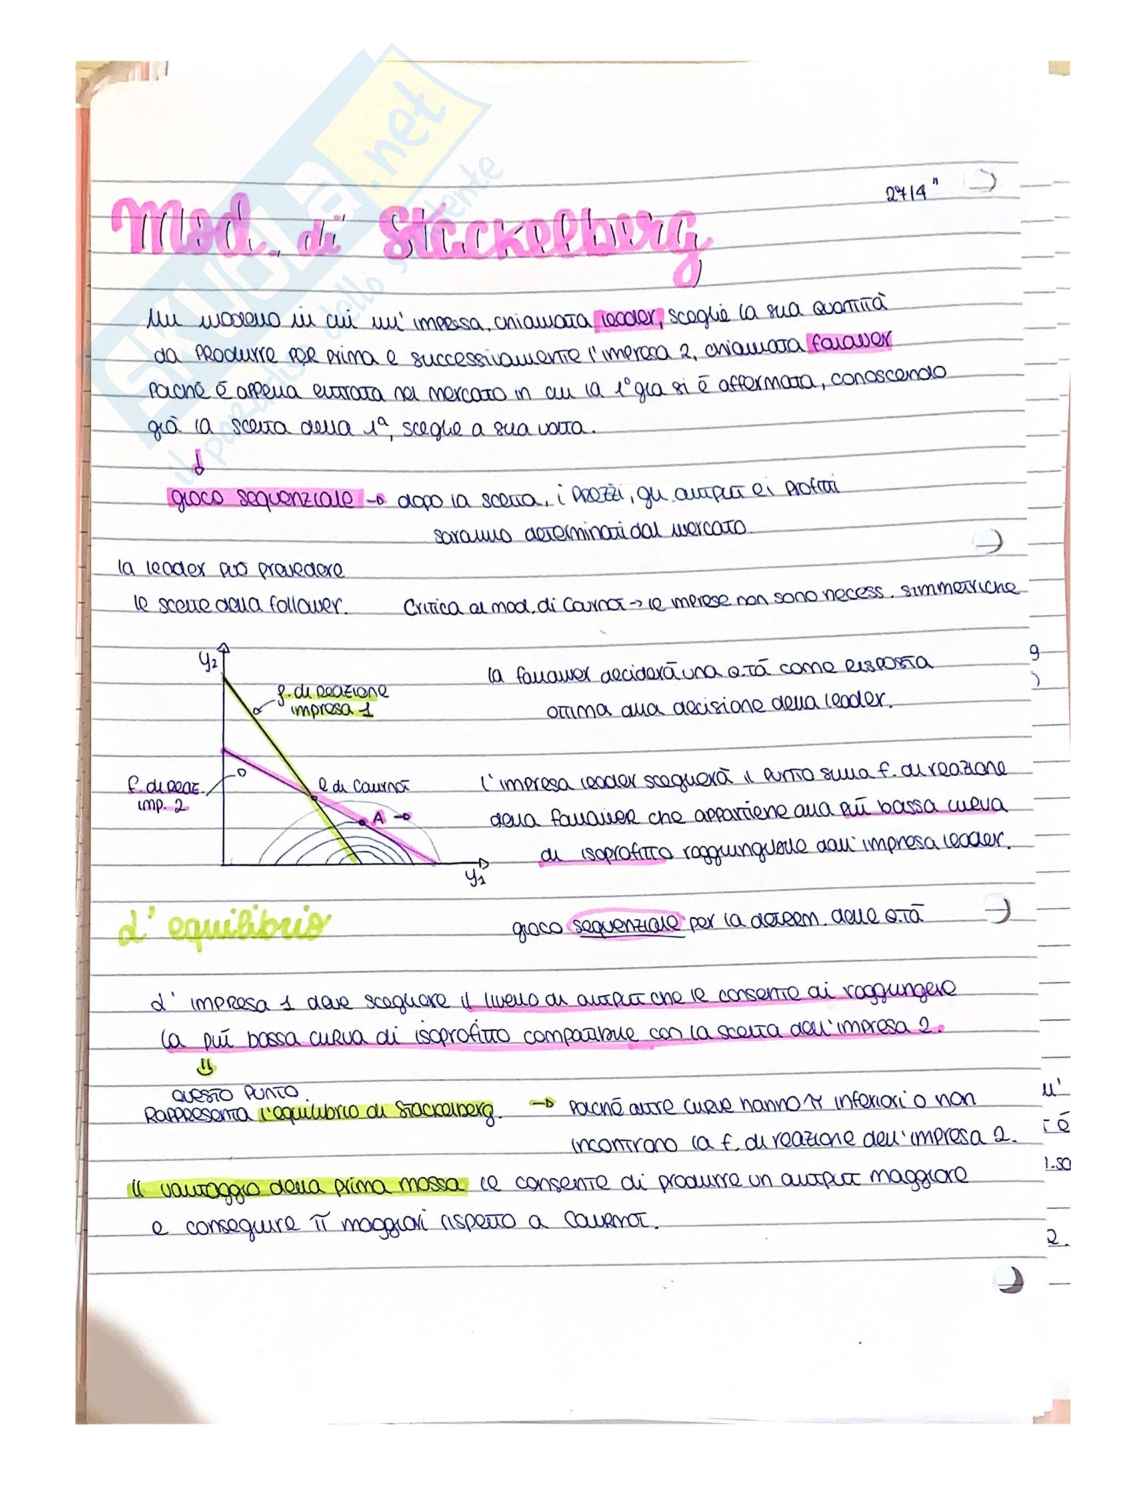 27/4"
Mod. di Stackelberg
Un modello in cui un'impresa, chiamata leader, sceglie la sua quantità
da produrre per prima e successivamente l'impresa 2, chiamata follower
poiché è appena entrata nel mercato in cui la 1° già si è affermata, conoscendo
già la scelta della 1ª, sceglie a sua volta.
↓
gioco sequenziale → dopo la scelta, i prezzi, gli output e i profitti
saranno determinati dal mercato
la leader può prevedere
le scelte della follower.
Critica al mod. di Cournot → le imprese non sono necess. simmetriche
la follower deciderà una q.tà come risposta
ottima alla decisione della leader.
y2
f. di reazione
impresa 1
f. di reaz.
imp. 2
e di Cournot
A →
y1
l'impresa leader sceglierà il punto sulla f. di reazione
della follower che appartiene alla più bassa curva
di isoprofitto raggiungibile dall'impresa leader.
L'equilibrio
gioco sequenziale per la determ. delle q.tà
L'impresa 1 deve scegliere il livello di output che le consente di raggiungere
la più bassa curva di isoprofitto compatibile con la scelta dell'impresa 2.
⇓
questo punto
rappresenta l'equilibrio di Stackelberg. → poiché altre curve hanno π inferiori o non
incontrano la f. di reazione dell'impresa 2.
Il vantaggio della prima mossa le consente di produrre un output maggiore
e conseguire π maggiori rispetto a Cournot.
SKUOLA.net
il paradiso dello studente